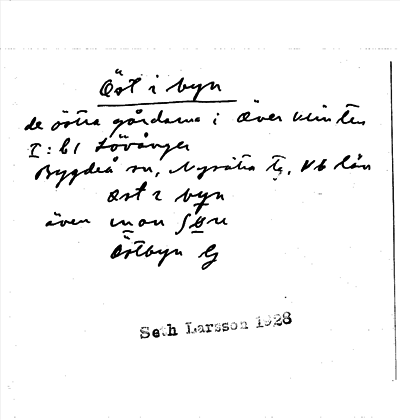 Öst i byn
de östra gårdarna i Överklinten
I:61 Lövånger
Bygdeå sn, Nysätra tg, Vb län
øst i byn
även
Östbyn
Seth Larsson 1928